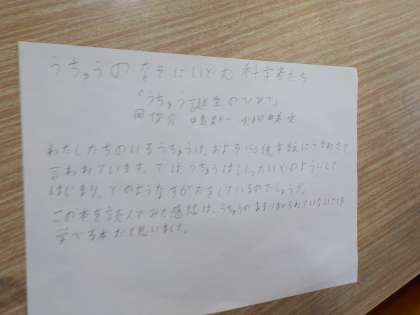 うちゅうのなぞにいどむ科学者たち
「うちゅう誕生のひみつ」
わたしたちのいるうちゅうは、およそ150億年前にうまれたと
言われています。では、うちゅうはいったいどのようにして
はじまり、どのようなすがたをしているのでしょうか。
この本を読んでみた感想は、うちゅうのあまり知られていないことを
学べる本だと思いました。